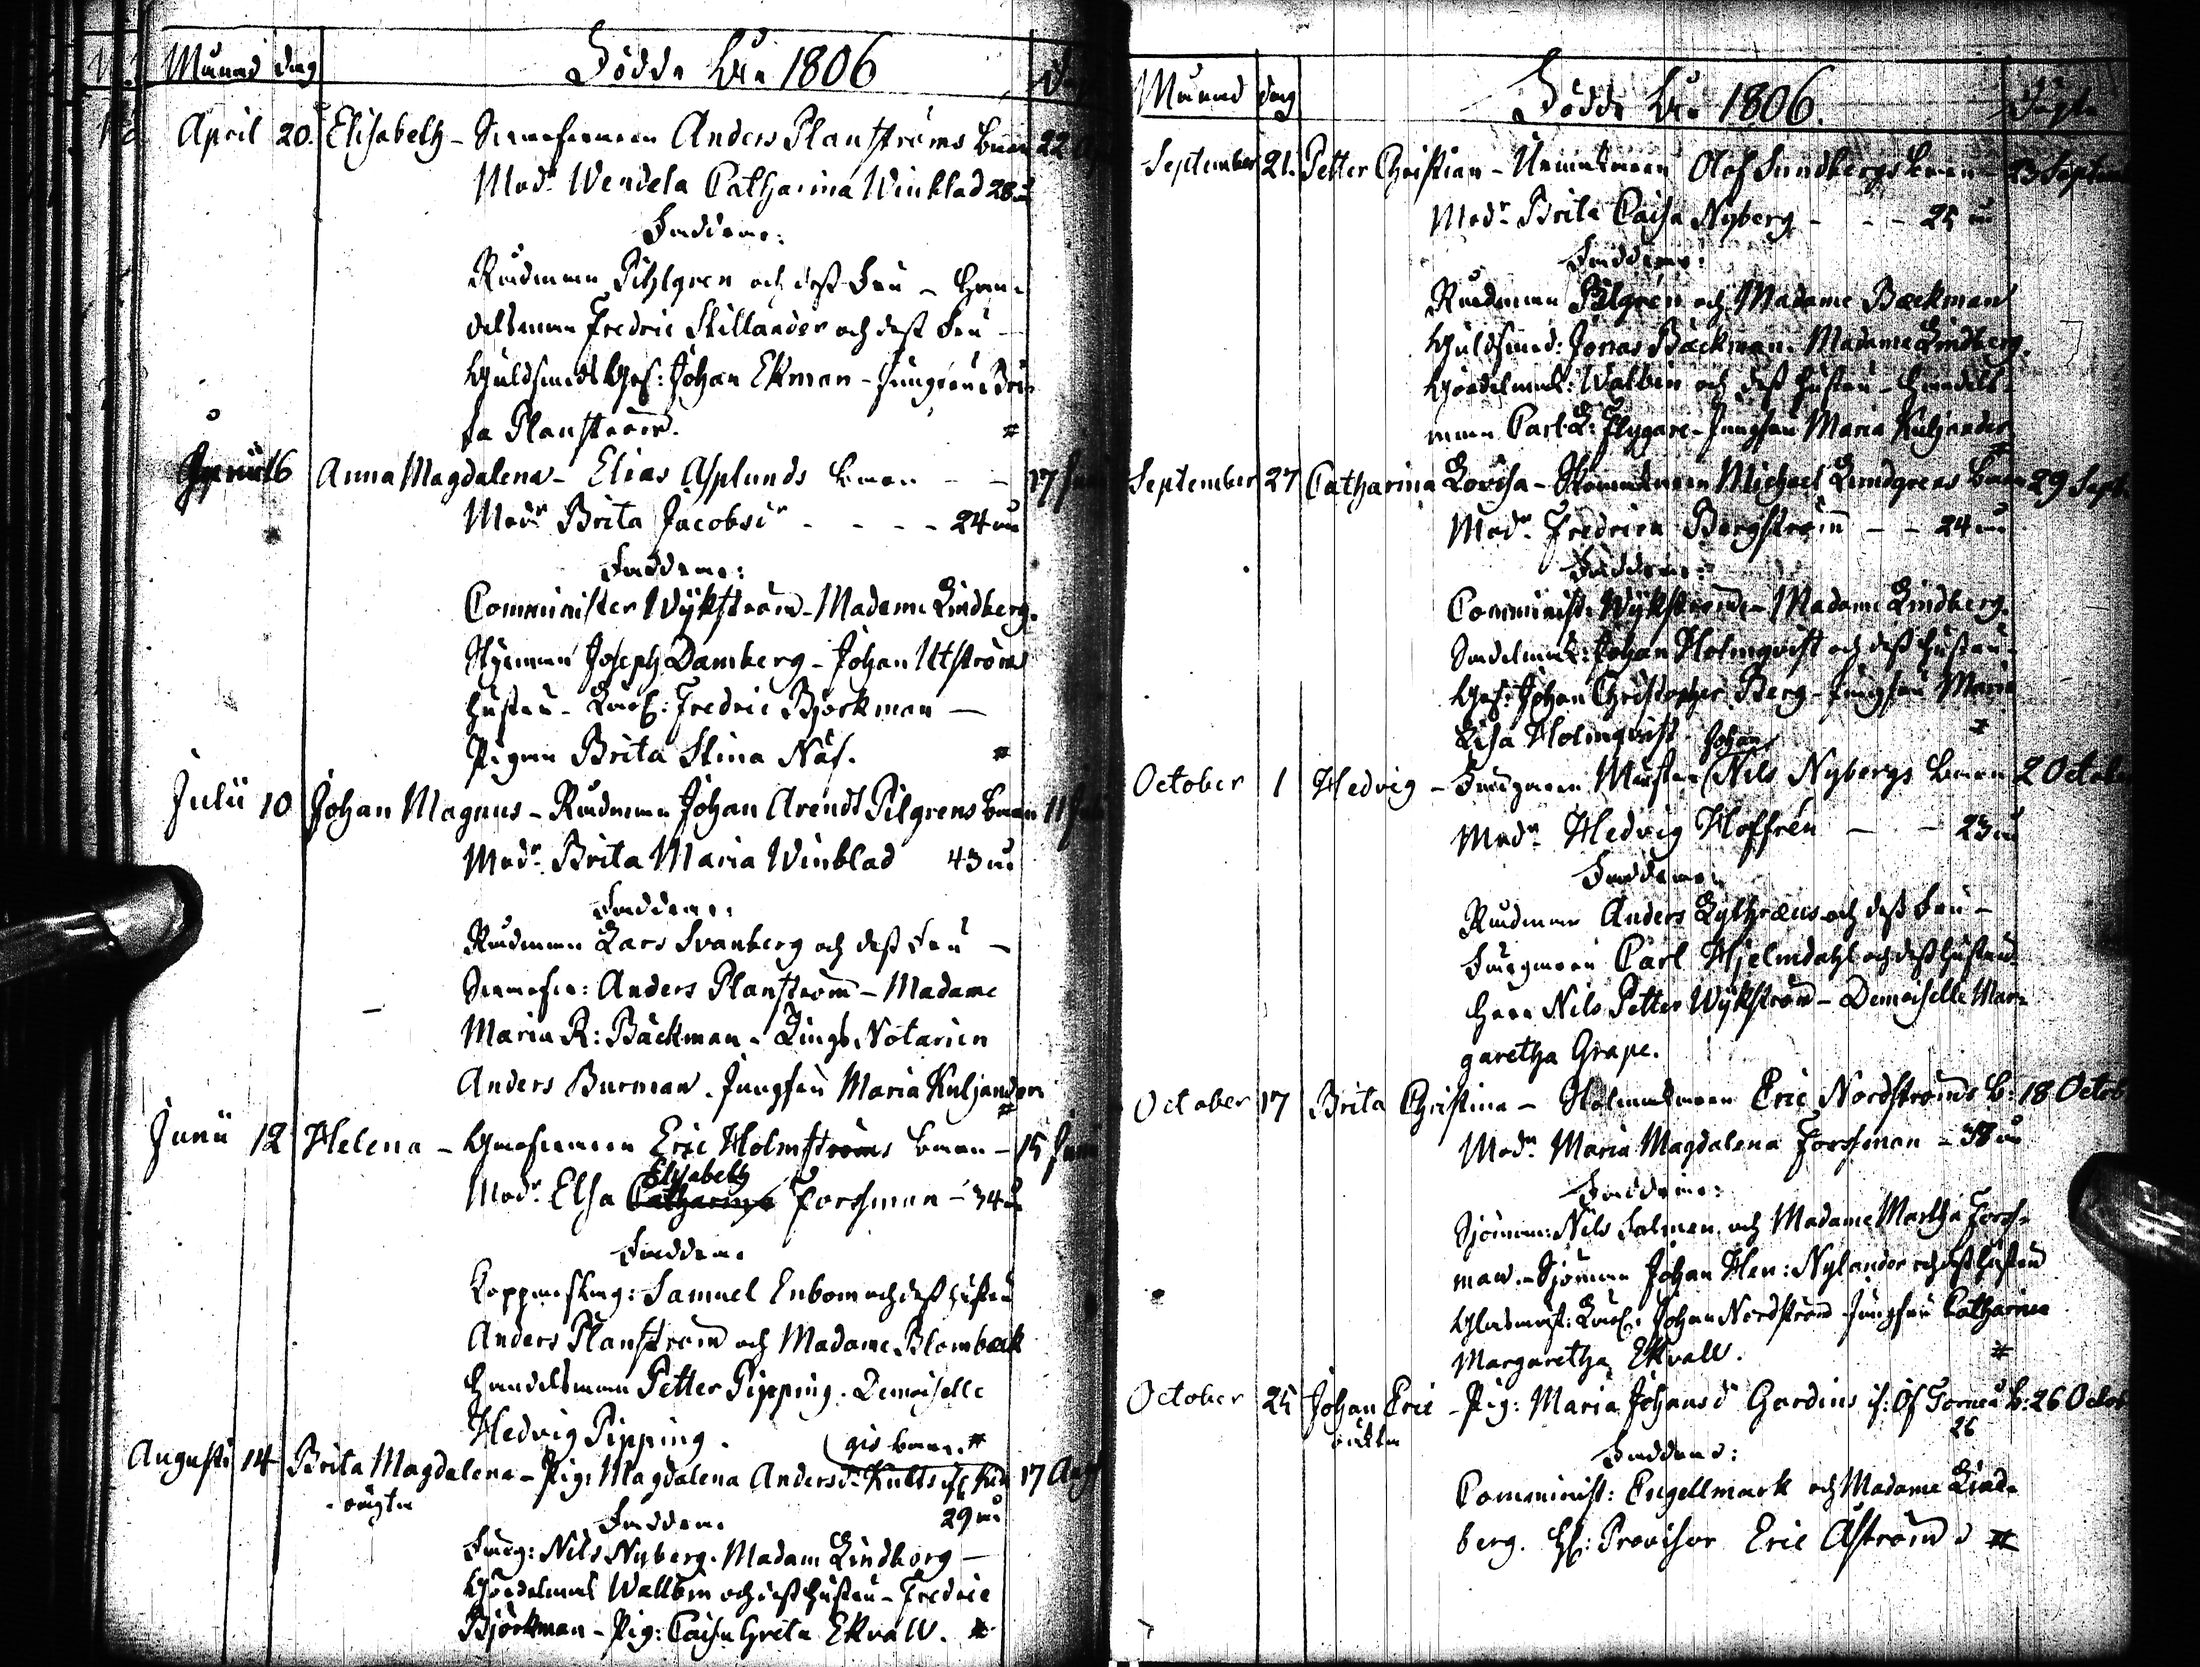 Månad dag Födde År 1806
April 20. Elisabeth - Anders Planströms barn 22
Modr Wendela Catharina Winblad 28 år
Faddrar:
Rådman Pihlgren och dess Fru - Han-
delsman Fredric Stillander och dess Fru -
Guldsmeds Ges: Johan Ekman - Jungfru Bri-
ta Planström. #
Junii 6 Anna Magdalena - Elias Asplunds barn - - 17 Junii
Modr Brita Jacobsdr - - - - 24 år
Faddrar:
Comminister Wijkström - Madame Lindberg.
Styrman Joseph Damberg - Johan Utströms
hustru - Fredric Björkman -
Pigan Brita Stina Näs. #
Julii 10 Johan Magnus - Rådman Johan Arendt Pilgrens barn 11
Modr Brita Maria Winblad 43 år
Faddrar:
Rådman Lars Svanberg och dess Fru -
Anders Planström - Madame
Maria R: Bäckman - Kungs Notarien
Anders Burman. Jungfru Maria Kuljander
#
Junii 12 Helena - Eric Holmströms barn - 15 Junii
Elisabeth
Modr Elsa Catharina Forssman - 34 år
Faddrar
Kopparslag: Samuel Enbom och dess hustru
Anders Planström och Madame Blombäck
Handelsman Petter Pipping. Demoiselle
Hedvig Pipping.
gis barn. #
Augusti 14 Brita Magdalena - Pig: Magdalena Andersdr Kults 17 Aug
oägta
29 år
Faddrar
Färg: Nils Nyberg. Madam Lindborg -
Wallbin och dess hustru - Fredric
Björkman - Pig: Caisa Greta Ekvall. #
Månad dag Födde År 1806. Döpte
September 21. Petter Christian - Olof Sundbergs barn - 23 Septem
Modr Brita Caisa Nyberg - - - 25 år
Faddrar:
Rådman Pilgren och Madame Bæckman
Guldsmed: Jonas Bäckman. Madame Lindberg.
Wallbin och dess hustru - Handels-
man Carl L: Flygare - Jungfru Maria Kuljander
#
September 27 Catharina Lovisa - Michael Lundgrens barn 29 Sept.
Modr Fredrica Bergström - - 24 år
Faddrar:
Comminist: Wijkström - Madame Lindberg.
Johan Holmqvist och dess hustru -
Ges: Johan Christopher Berg - Jungfru Maria
Lisa Holmqvist #
Johan
October 1 Hedvig - Nils Nybergs barn 2 October
Modr Hedvig Hoffrén - - 23 år
Faddrar
Rådman Anders Lythræus och dess Fru -
Carl Hjelmdahl och dess hustru
Herr Nils Petter Wijkström - Demoiselle Mar-
garetha Grape.
October 17 Brita Christina - Eric Nordströms b: 18 Octob
Modr Maria Magdalena Forssman - 38 år
Faddrar:
Sjöman: Nils Falman och Madame Martha Forss-
man. - Sjöman Johan Hen: Nylander och dess hustru
Johan Nordström Jungfru Catharina
Margaretha Ekvall. #
October 25 Johan Eric - Pig: Maria Johansdr Gardins Torneå b: 26 Octob
oäkta 26
Faddrar:
Comminist: Engellmark och Madame Lind-
berg. Hr: Provisor Eric Aström #